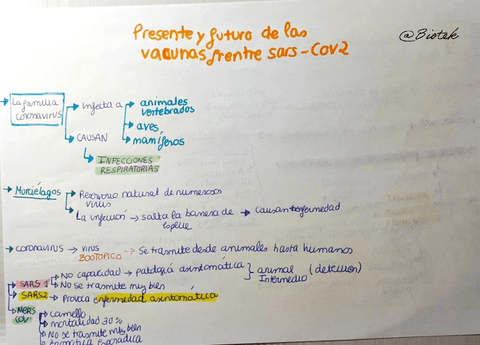 Presente y futuro de las
vacunas frente sars-Cov2
@Biotek
La familia
coronavirus
infecta a
animales
vertebrados
aves
mamíferos
CAUSAN
INFECCIONES
RESPIRATORIAS
Murciélagos
Reservorio natural de numerosos
virus
La infección → salta la barrera de → causan enfermedad
coronavirus → virus → Se trasmite desde animales hasta humanos
ZOOTOPICO
SARS 1
No capacidad → patología asintomática
No se trasmite muy bien
animal (detección)
Intermedio
SARS2 → Provoca enfermedad asintomática
MERS
COV
camello
mortalidad 30%
No se trasmite muy bien